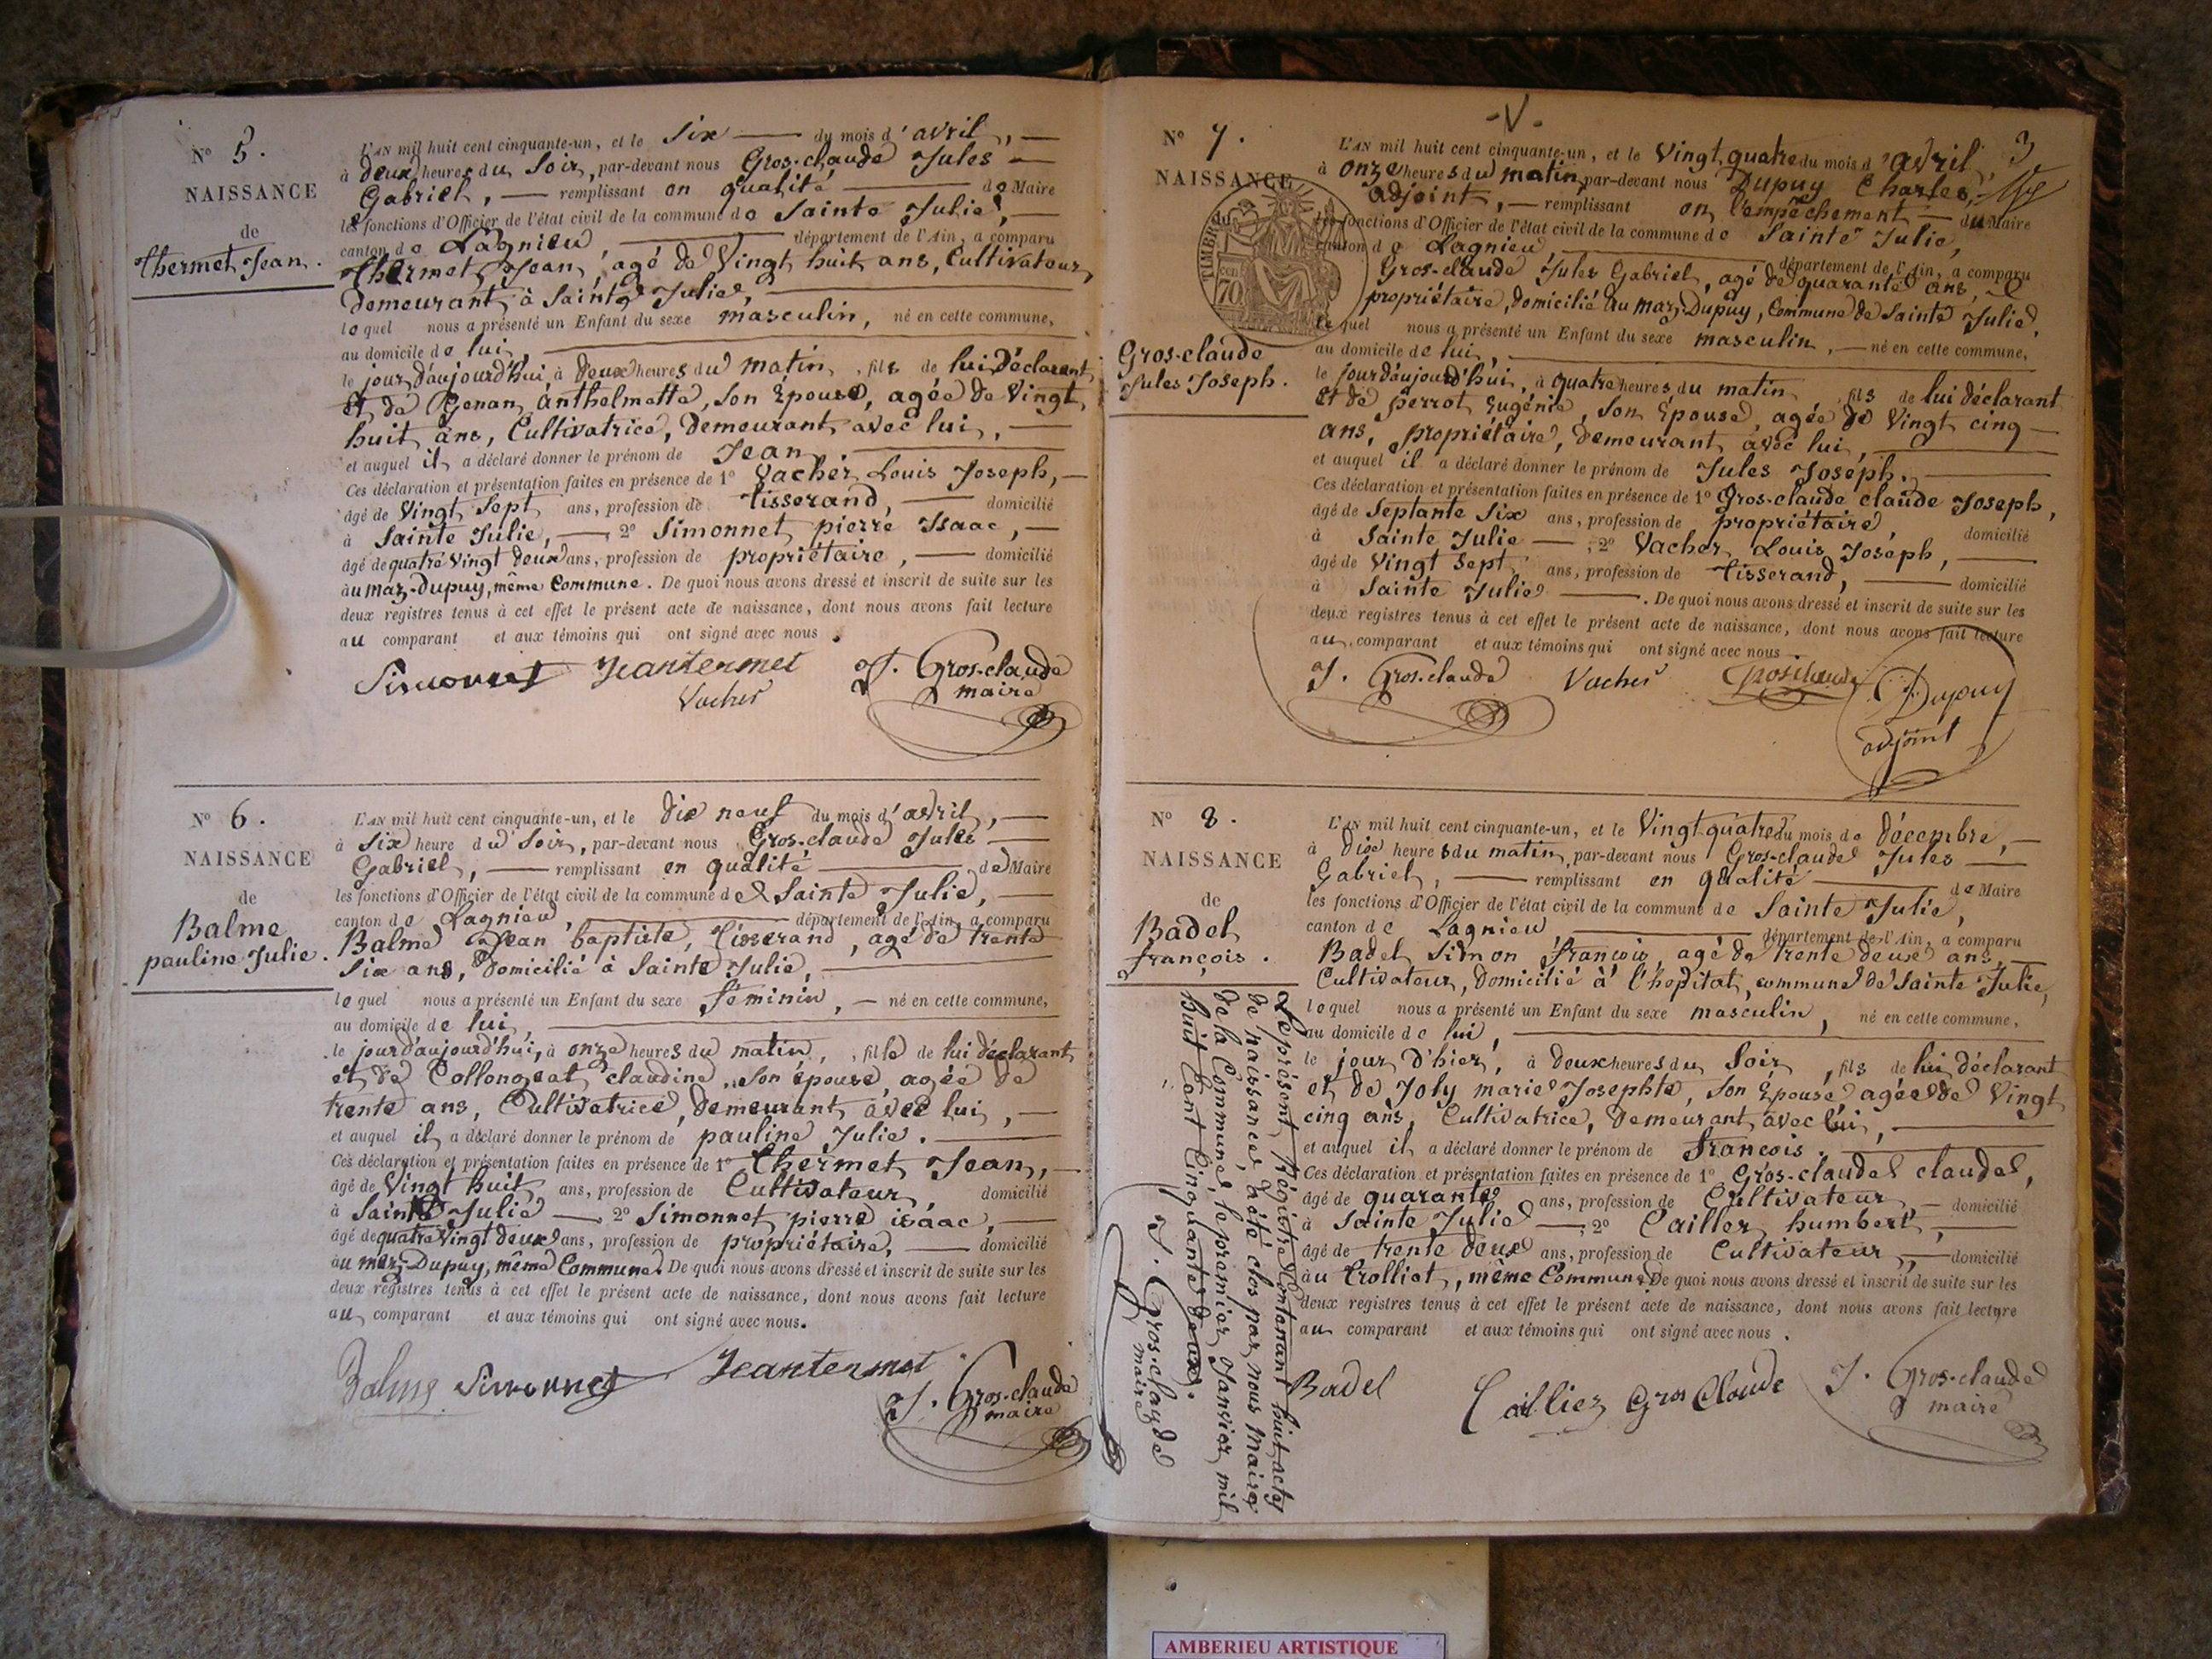 N° 5.
NAISSANCE
de
Thermet Jean.
L'AN mil huit cent cinquante-un, et le Six du mois d'avril,
à deux heures du Soir, par-devant nous Gros-claude Jules
Gabriel, remplissant en qualité de Maire
les fonctions d'Officier de l'état civil de la commune de Sainte Julie,
canton de Lagnieu, département de l'Ain, a comparu
Thermet Jean, agé de Vingt huit ans, Cultivateur,
Demeurant à Sainte Julie,
lequel nous a présenté un Enfant du sexe masculin, né en cette commune,
au domicile de lui,
le jour d'aujourd'hui, à deux heures du matin, fils de lui Déclarant
Et de Genan anthelmette, Son Epouse, agée de Vingt
huit ans, Cultivatrice, Demeurant avec lui,
et auquel il a déclaré donner le prénom de Jean.
Ces déclaration et présentation faites en présence de 1° Vacher Louis Joseph,
âgé de Vingt Sept ans, profession de tisserand, domicilié
à Sainte Julie, 2° Simonnet pierre Isaac,
âgé de quatre Vingt deux ans, profession de propriétaire, domicilié
au maz-Dupuy, même Commune. De quoi nous avons dressé et inscrit de suite sur les
deux registres tenus à cet effet le présent acte de naissance, dont nous avons fait lecture
au comparant et aux témoins qui ont signé avec nous.
Simonnet Jean termet J. Gros-claude
Vacher maire
N° 6.
NAISSANCE
de
Balme
pauline Julie.
L'AN mil huit cent cinquante-un, et le dix neuf du mois d'avril,
à Six heure du Soir, par-devant nous Gros-claude Jules
Gabriel, remplissant en qualité de Maire
les fonctions d'Officier de l'état civil de la commune de Sainte Julie,
canton de Lagnieu, département de l'Ain, a comparu
Balme Jean baptiste, Tisserand, agé de trente
Six ans, Domicilié à Sainte Julie,
lequel nous a présenté un Enfant du sexe féminin, né en cette commune,
au domicile de lui,
le jour d'aujourd'hui, à onze heures du matin, fille de lui déclarant
et de Collongeat claudine, Son épouse, agée de
trente ans, Cultivatrice, demeurant avec lui,
et auquel il a déclaré donner le prénom de pauline Julie.
Ces déclaration et présentation faites en présence de 1° Thermet Jean,
âgé de Vingt huit ans, profession de Cultivateur, domicilié
à Sainte Julie 2° Simonnet pierre isaac,
âgé de quatre Vingt deux ans, profession de propriétaire, domicilié
au maz-Dupuy, même Commune. De quoi nous avons dressé et inscrit de suite sur les
deux registres tenus à cet effet le présent acte de naissance, dont nous avons fait lecture
au comparant et aux témoins qui ont signé avec nous.
Balme Simonnet Jean termet
J. Gros-claude
maire
-V-
3
N° 7.
NAISSANCE
TIMBRE
CEN 70
Gros-claude
Jules Joseph.
L'AN mil huit cent cinquante-un, et le Vingt quatre du mois d'avril,
à onze heures du matin, par-devant nous Dupuy Charles,
adjoint, remplissant en l'empêchement du Maire
les fonctions d'Officier de l'état civil de la commune de Sainte Julie,
canton de Lagnieu, département de l'Ain, a comparu
Gros-claude Jules Gabriel, agé de quarante ans,
propriétaire, Domicilié au maz-Dupuy, Commune de Sainte Julie,
lequel nous a présenté un Enfant du sexe masculin, né en cette commune,
au domicile de lui,
le jour d'aujourd'hui, à quatre heures du matin, fils de lui déclarant
et de perrot Eugénie, Son Epouse, agée de Vingt cinq
ans, propriétaire, Demeurant avec lui,
et auquel il a déclaré donner le prénom de Jules Joseph.
Ces déclaration et présentation faites en présence de 1° Gros-claude claude Joseph,
âgé de Septante Six ans, profession de propriétaire, domicilié
à Sainte Julie 2° Vacher Louis Joseph,
âgé de Vingt Sept ans, profession de tisserand, domicilié
à Sainte Julie. De quoi nous avons dressé et inscrit de suite sur les
deux registres tenus à cet effet le présent acte de naissance, dont nous avons fait lecture
au comparant et aux témoins qui ont signé avec nous
J. Gros-claude Vacher Grosclaude Dupuy
adjoint
N° 8.
NAISSANCE
de
Badel
françois.
L'AN mil huit cent cinquante-un, et le Vingt-quatre du mois de décembre,
à dix heures du matin, par-devant nous Gros-claude Jules
Gabriel, remplissant en qualité de Maire
les fonctions d'Officier de l'état civil de la commune de Sainte Julie,
canton de Lagnieu, département de l'Ain, a comparu
Badel Simon françois, agé de trente deux ans,
Cultivateur, Domicilié à l'hopital, commune de Sainte Julie,
lequel nous a présenté un Enfant du sexe masculin, né en cette commune,
au domicile de lui,
le jour d'hier, à deux heures du Soir, fils de lui déclarant
et de Joly marie Josephte, Son Epouse, agée de Vingt
cinq ans, Cultivatrice, Demeurant avec lui,
et auquel il a déclaré donner le prénom de françois.
Ces déclaration et présentation faites en présence de 1° Gros-claude claude,
âgé de quarante ans, profession de Cultivateur domicilié
à Sainte Julie 2° Caillez humbert,
âgé de trente deux ans, profession de Cultivateur, domicilié
au Trolliet, même Commune. De quoi nous avons dressé et inscrit de suite sur les
deux registres tenus à cet effet le présent acte de naissance, dont nous avons fait lecture
au comparant et aux témoins qui ont signé avec nous.
Badel Caillez Gros Claude J. Gros-claude
maire
Le présent Régistre Contenant huit actes
de naissance, a été clos par nous Maire
de la Commune, le premier Janvier mil
huit Cent Cinquante deux.
J. Gros-claude
maire
AMBERIEU ARTISTIQUE